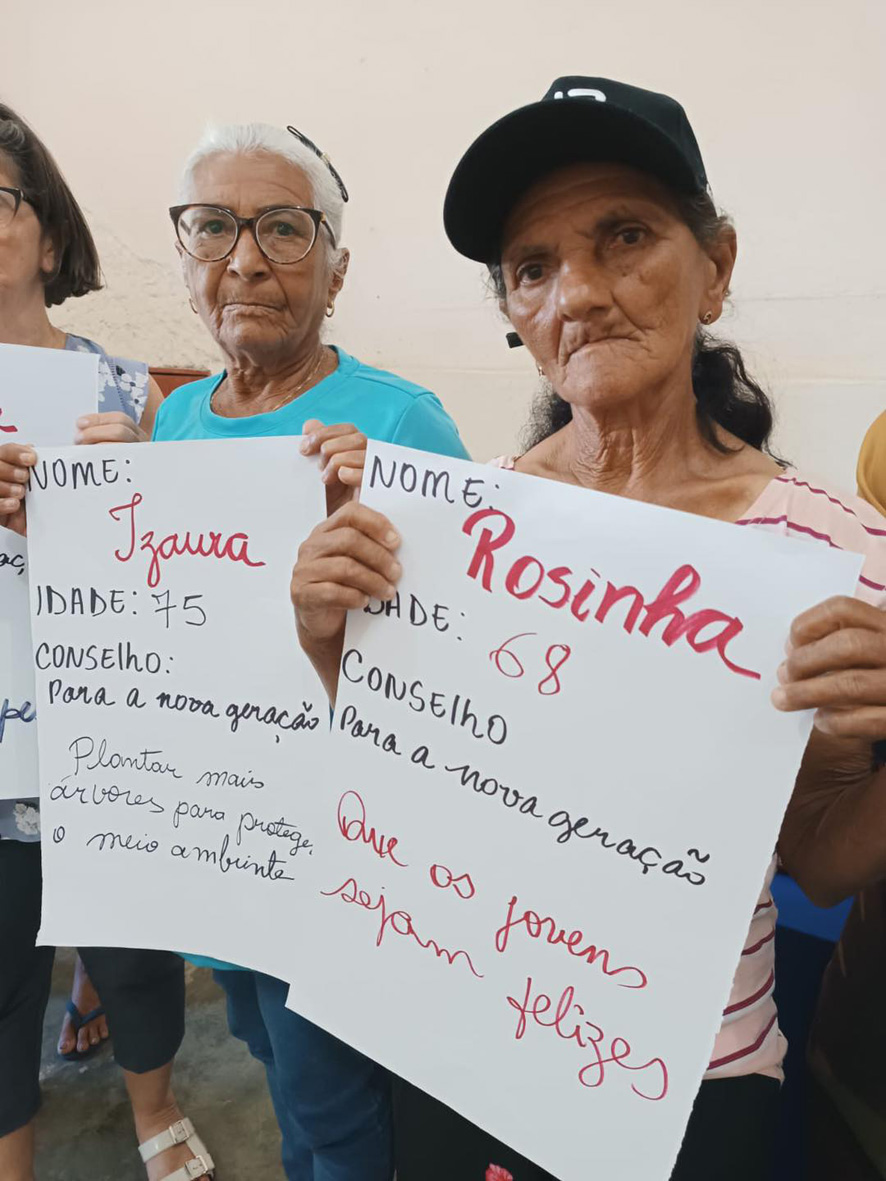 NOME:
Izaura
IDADE: 75
CONSElho:
Para a nova geração
Plantar mais
árvores para protege,
o meio ambinte
NOME:
Rosinha
DADE:
68
CONSElhO
Para a nova geração
Que os jovens
sejam felizes